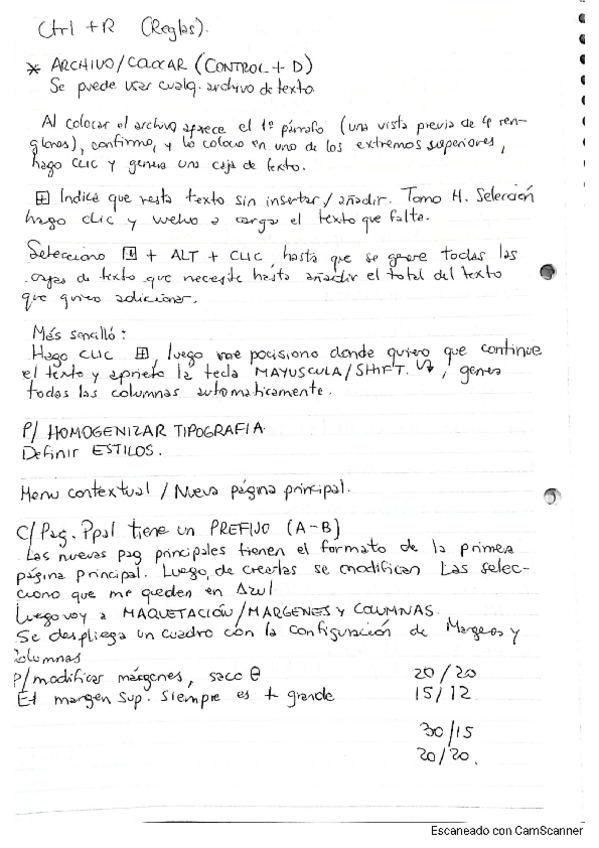 Ctrl + R (Reglas).
* ARCHIVO/COLOCAR (CONTROL + D)
Se puede usar cualq. archivo de texto
Al colocar el archivo aparece el 1º párrafo (una vista previa de 4 ren-
glones), confirmo, y lo coloco en uno de los extremos superiores,
hago CLIC y genera una caja de texto.
⊞ Indica que resta texto sin insertar/añadir. Tomo H. Selección
hago clic y vuelvo a cargar el texto que falta.
Selecciono + ALT + CLIC, hasta que se genere todas las
cajas de texto que necesite hasta añadir el total del texto
que quiero adicionar.
Más sencillo:
Hago CLIC ⊞, luego me posiciono donde quiero que continue
el texto y aprieto la tecla MAYUSCULA/SHIFT. , genera
todas las columnas automaticamente.
P/ HOMOGENIZAR TIPOGRAFIA
Definir ESTILOS.
Menu contextual / Nueva página principal.
C/Pag. Ppal tiene un PREFIJO (A-B)
Las nuevas pag principales tienen el formato de la primera
página principal. Luego de crearlas se modifican Las selec-
ciono que me queden en Azul
Luego voy a MAQUETACIÓN/MARGENES Y COLUMNAS.
Se despliega un cuadro con la configuración de Margenes y
Columnas
P/modificar márgenes, saco 20/20
El margen Sup. Siempre es + grande 15/12
30/15
20/20.
Escaneado con CamScanner